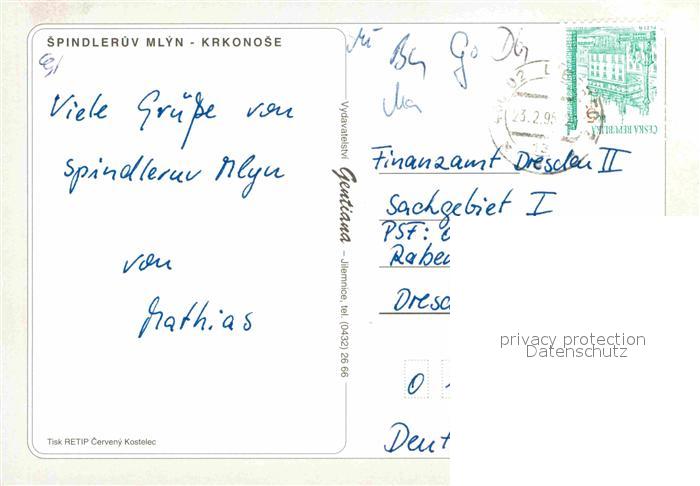 ŠPINDLERŮV MLÝN - KRKONOŠE
Viele Grüße von
Spindleruv Mlyn
von
Mathias
Tisk RETIP Červený Kostelec
Vydavatelství Gentiana – Jilemnice, tel. (0432) 26 66
ČESKÁ REPUBLIKA
23.2.95
Finanzamt Dresden II
Sachgebiet I
PSF:
Raben
Dresd
0
Deut
privacy protection
Datenschutz